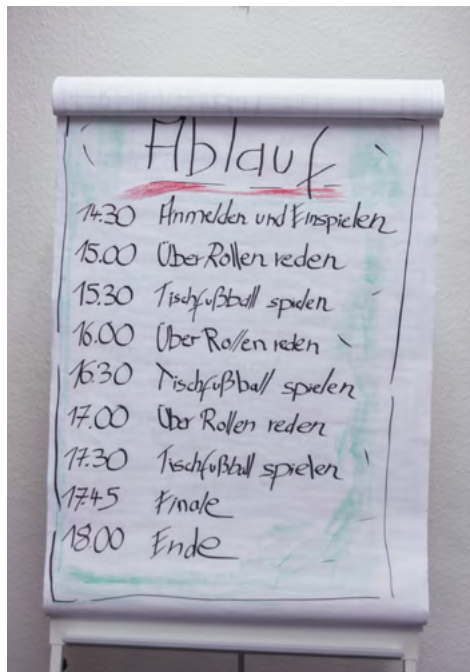 Ablauf
14.30 Anmelden und Einspielen
15.00 Über Rollen reden
15.30 Tischfußball spielen
16.00 Über Rollen reden
16.30 Tischfußball spielen
17.00 Über Rollen reden
17.30 Tischfußball spielen
17.45 Finale
18.00 Ende